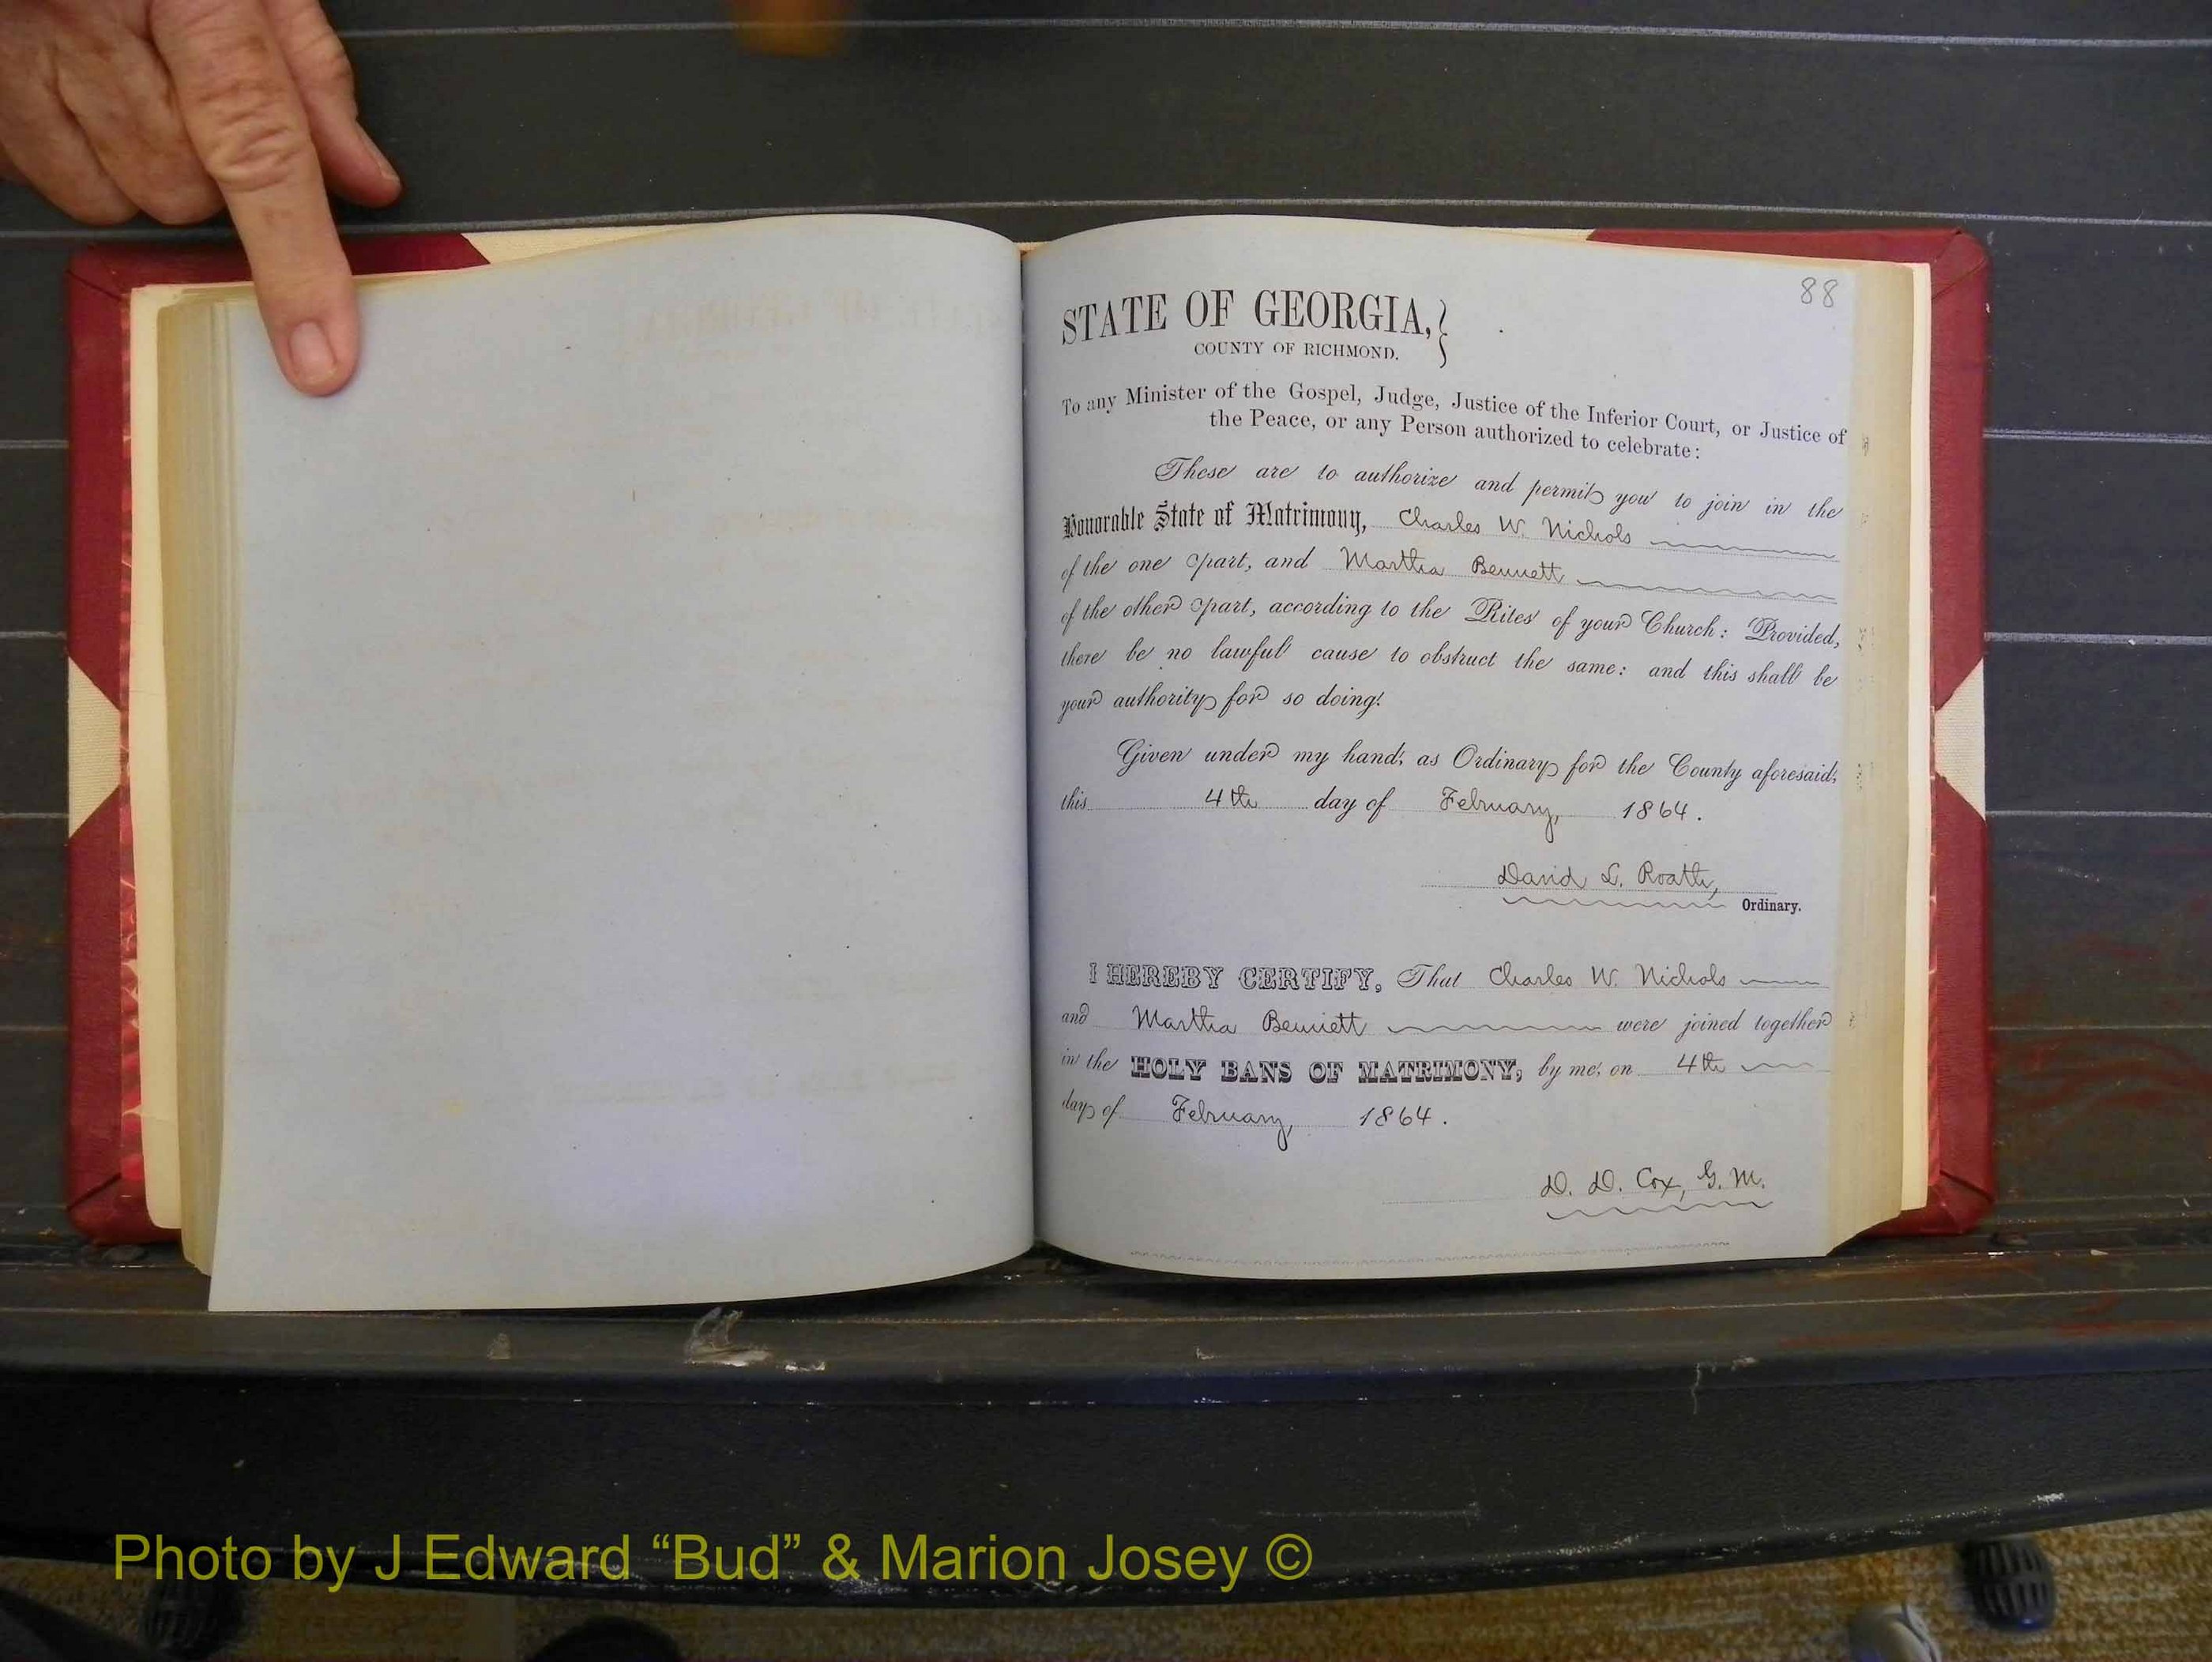 88
STATE OF GEORGIA,
COUNTY OF RICHMOND.
To any Minister of the Gospel, Judge, Justice of the Inferior Court, or Justice of
the Peace, or any Person authorized to celebrate:
These are to authorize and permit you to join in the
Honorable State of Matrimony, Charles W. Nichols
of the one part, and Martha Bennett
of the other part, according to the Rites of your Church: Provided,
there be no lawful cause to obstruct the same: and this shall be
your authority for so doing.
Given under my hand, as Ordinary for the County aforesaid,
this 4th day of February, 1864.
David L. Roath,
Ordinary.
I HEREBY CERTIFY, That Charles W. Nichols
and Martha Bennett were joined together
in the HOLY BANS OF MATRIMONY, by me, on 4th
day of February, 1864.
D. D. Cox, G. M.
Photo by J Edward “Bud” & Marion Josey ©